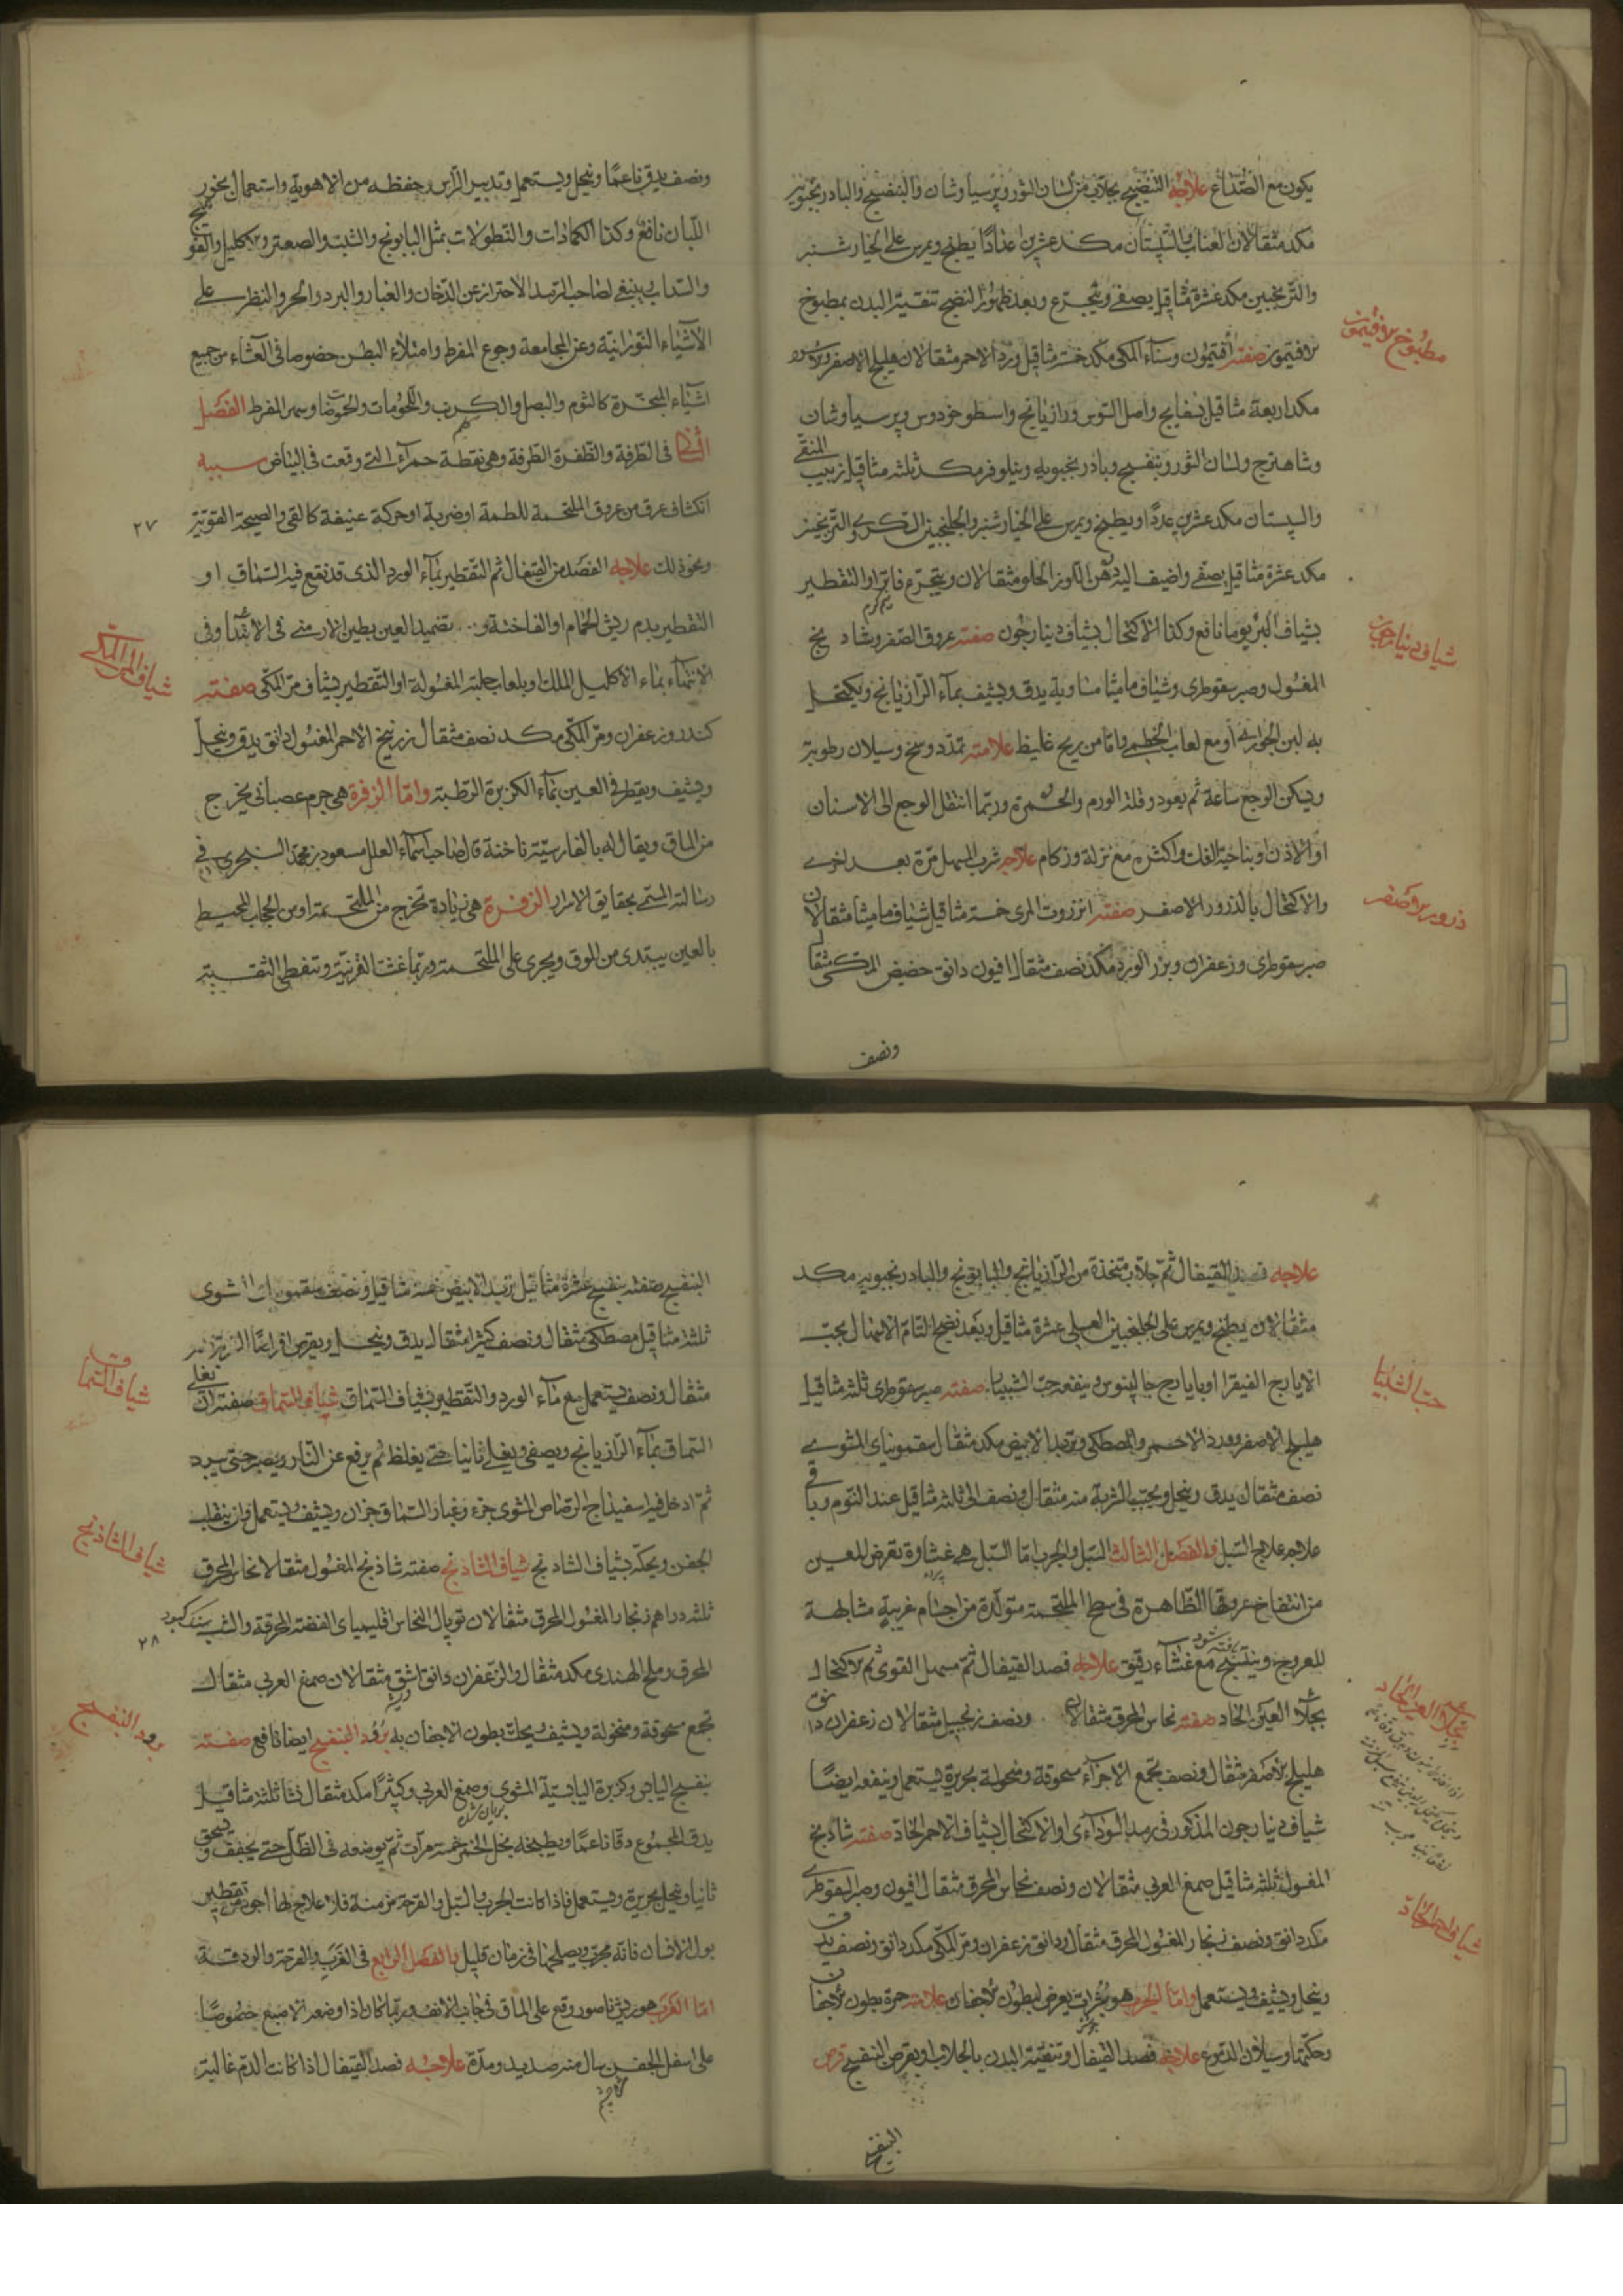 يكون مع الصداع علاجه التنضيج بجلاب من لسان الثور وپرسياوشان والبنفسج والبادرنجبويه
مكد مثقالان العناب والسپستان مكد عشرين عدداً يطبخ ويمرس على الخيار شنبر
والترنجبين مكد عشرة مثاقيل يصفى ويتجرع وبعد ظهور النضج تنقية البدن بمطبوخ
الافتيمون صفته افتيمون وسناء المكى مكد خمسة مثاقيل ورد الاحمر مثقالان هليلج الاصفر والاسود
مكد اربعة مثاقيل بسفايج واصل السوس ورازيانج واسطوخودوس وپرسياوشان
وشاهترج ولسان الثور وبنفسج وبادرنجبويه ونيلوفر مكد ثلثه مثاقيل زبيب المنقى
والسپستان مكد عشرين عدداً ويطبخ ويمرس على الخيار شنبر والجلنجبين السكرى والترنجبين
مكد عشرة مثاقيل يصفى واضيف اليه دهن اللوز الحلو مثقالان ويتجرع فاترا والتقطير
بشياف ابريوما نافع وكذا الاكتحال بشياف دينارجون صفته عروق الصفر وشادنج
المغسول وصبر سقوطرى وشياف ماميثا متساوية يدق ويشيف بماء الرازيانج ويكتحل
به لبن الجوارى او مع لعاب الخطمى واما من ريح غليظ علامته تمدد وسخ وسيلان رطوبة
ويسكن الوجع ساعة ثم يعود وقلة الورم والحمرة وربما انتقل الوجع الى الاسنان
او الاذن او بناحية القلب واكثره مع نزلة وزكام علاجه شرب المسهل مرة بعد اخرى
والاكتحال بالذرور الاصفر صفته انزروت المربى خمسة مثاقيل شياف ماميثا مثقالان
صبر سقوطرى وزعفران وبزر الورد مكد نصف مثقال افيون دانق حضض المكى مثقال
ونصف
مطبوخ افتيمون
شياف دينارجون
ذرور اصفر
ونصف يدق ناعمًا وينخل ويستعمل وتدبير الراس وحفظه من الاهوية واستعمال بخور
اللبان نافع وكذا الكمادات والنطولات بمثل البابونج والشبت والصعتر والاكليل والفوتنج
والسداب وينبغى لصاحب الرمد الاحتراز عن الدخان والغبار والبرد والحر والنظر على
الاشياء النورانية وعن المجامعة وجوع المفرط وامتلاء البطن خصوصا فى العشاء من جميع
اشياء المبخرة كالثوم والبصل والكرنب واللحومات والحموضات وسهر المفرط الفصل
الثانى فى الطرفة والظفرة الطرفة وهى نقطة حمراء التى وقعت فى البياض سببه
انكشاف عرق من عروق الملتحمة للطمة او ضربة او حركة عنيفة كالقى والصيحة القوية
ونحو ذلك علاجه الفصد من القيفال ثم التقطير بماء الورد الذى قد نقع فيه السماق او
التقطير بدم ريش الحمام او الفاختة و تضميد العين بطين الارمنى فى الابتداء وفى
الانتهاء بماء الاكليل الملك او بلعاب حلبة المغسولة او التقطير بشياف مر المكى صفته
كندر وزعفران ومر المكى مكد نصف مثقال زرنيخ الاحمر المغسول دانق يدق وينخل
ويشيف ويقطر فى العين بماء الكزبرة الرطبة واما الزفرة هى جرم عصبانى يخرج
من الماق ويقال له بالفارسية ناخنة قال صاحب اسماء العلل مسعود بن محمد السنجرى فى
رسالته المسمى بحقايق الاسرار الزفرة هى زيادة تخرج من الملتحمة او من الحجاب المحيط
بالعين يبتدى من الموق ويجرى على الملتحمة وربما غشت القرنية وتغطى الثقبة
٢٧
شياف المر المكى
علاجه فصد القيفال ثم جلاب متخذة من الرازيانج والبابونج والبادرنجبويه مكد
مثقالان يطبخ ويمرس على الجلنجبين العسلى عشرة مثاقيل وبعد نضج التام الاسهال بحب
الايارج الفيقرا او بايارج جالينوس وينفعه حب الشبيار صفته صبر سقوطرى ثلثه مثاقيل
هليلج الاصفر وورد الاحمر والمصطكى وتربد الابيض مكد مثقال سقمونياى المشوى
نصف مثقال يدق وينخل ويحبب الشربة منه مثقال ونصف الى ثلثه مثاقيل عند النوم وباقى
علاجه علاج السبل والفصل الثالث السبل والجرب اما السبل هى غشاوة تعرض للعين
من انتفاخ عروقها الظاهرة فى سطح الملتحمة متولدة من اجسام غريبة مشابهة
للعروق وينتسج مع غشاء رقيق علاجه فصد القيفال ثم مسهل القوى ثم الاكتحال
بجلاء العينى الحاد صفته نحاس المحرق مثقالان ونصف زنجبيل مثقالان زعفران دانق
هليلج الاصفر مثقال ونصف تجمع الاجزاء مسحوقة ومنخولة بحريرة يستعمل وينفعه ايضًا
شياف دينارجون المذكور فى رمد السوداءى او الاكتحال بشياف الاحمر الحاد صفته شادنج
المغسول ثلثه مثاقيل صمغ العربى مثقالان ونصف نحاس المحرق مثقال افيون وصبر السقوطرى
مكد دانق ونصف زنجار المغسول المحرق مثقال ودانق زعفران ومر المكى مكد دانق ونصف يدق
وينخل ويشيف ويستعمل واما الجرب هو بثرات يعرض لبطون الاجفان علامته حمرة بطون الاجفان
وحكتها وسيلان الدموع علاجه فصد القيفال وتنقية البدن بالجلاب او بقرص البنفسج قرص
البنفسج
حب الشبيار
شياف احمر الحاد
البنفسج صفته بنفسج عشرة مثاقيل تربد الابيض خمسة مثاقيل ونصف سقمونياى المشوى
ثلثه مثاقيل مصطكى مثقال ونصف كثيرا مثقال يدق وينخل ويقرص اقراصًا
مثقال ونصف يستعمل مع ماء الورد والتقطير بشياف السماق شياف السماق صفته ان تغلى
السماق بماء الرازيانج ويصفى ويغلى ثانيا حتى يغلظ ثم يرفع عن النار ويصبر حتى يبرد
ثم ادخل فيه اسفيذاج الرصاص المشوى جزء وغبار السماق جزان ويشيف ويستعمل وان ينقلب
الجفن ويحكه بشياف الشادنج شياف الشاذنج صفته شاذنج المغسول مثقالا نحاس المحرق
ثلثه دراهم زنجار المغسول المحرق مثقالان توپال النحاس اقليمياى الفضة المحرقة والشب
المحرق وملح الهندى مكد مثقال والزعفران دانق اشق مثقالان صمغ العربى مثقال
تجمع مسحوقة ومنخولة ويشيف ويحك بطون الاجفان به برود البنفسج ايضا نافع صفته
بنفسج اليابس وكزبرة اليابسة المشوى وصمغ العربى وكثيرا مكد مثقال نشا ثلثه مثاقيل
يدق المجموع دقا ناعمًا ويطبخه بخل الخمر خمسة مرات ثم يوضعه فى الظل حتى يجفف ويسحق
ثانيا وينخل بحريرة ويستعمل فاذا كانت الجرب والسبل والقرحة مزمنة فلا علاج لها اجود من تقطير
بول الانسان فانه مجرب ويصلحها فى زمان قليل والفصل الرابع فى الغرب والقرحة والودقة
اما الغرب هو ريش ناصور وقع على الماق فى جانب الانف وربما كان اذا وضعه الاصبع خصوصًا
على اسفل الجفن سال منه صديد ومدة علاجه فصد القيفال اذا كانت الدم غالبة
٢٨
شياف السماق
شياف الشاذنج
برود البنفسج